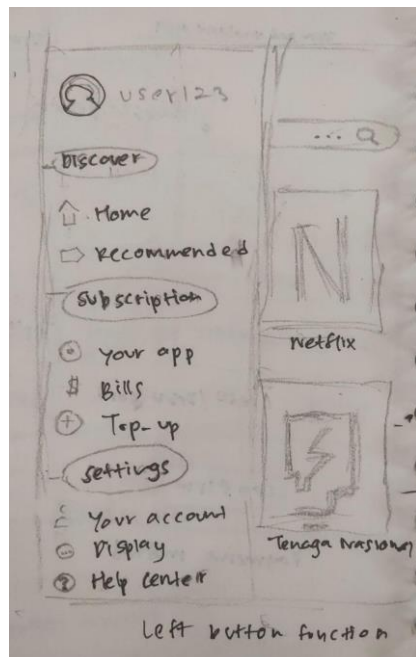 user123
Discover
Home
Recommended
Subscription
your app
$ Bills
Top-up
settings
Your account
Display
? Help center
...
N
Netflix
Tenaga Nasional
Left button function